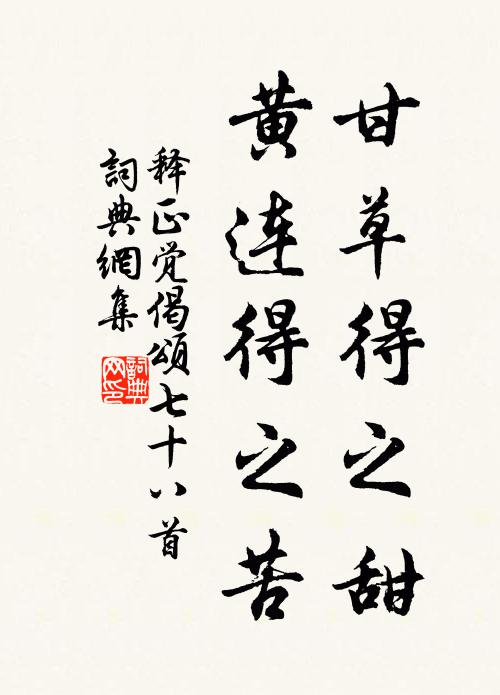 甘草得之甜
黄连得之苦
释正觉偈颂七十八首
詞典網集
詞典網印